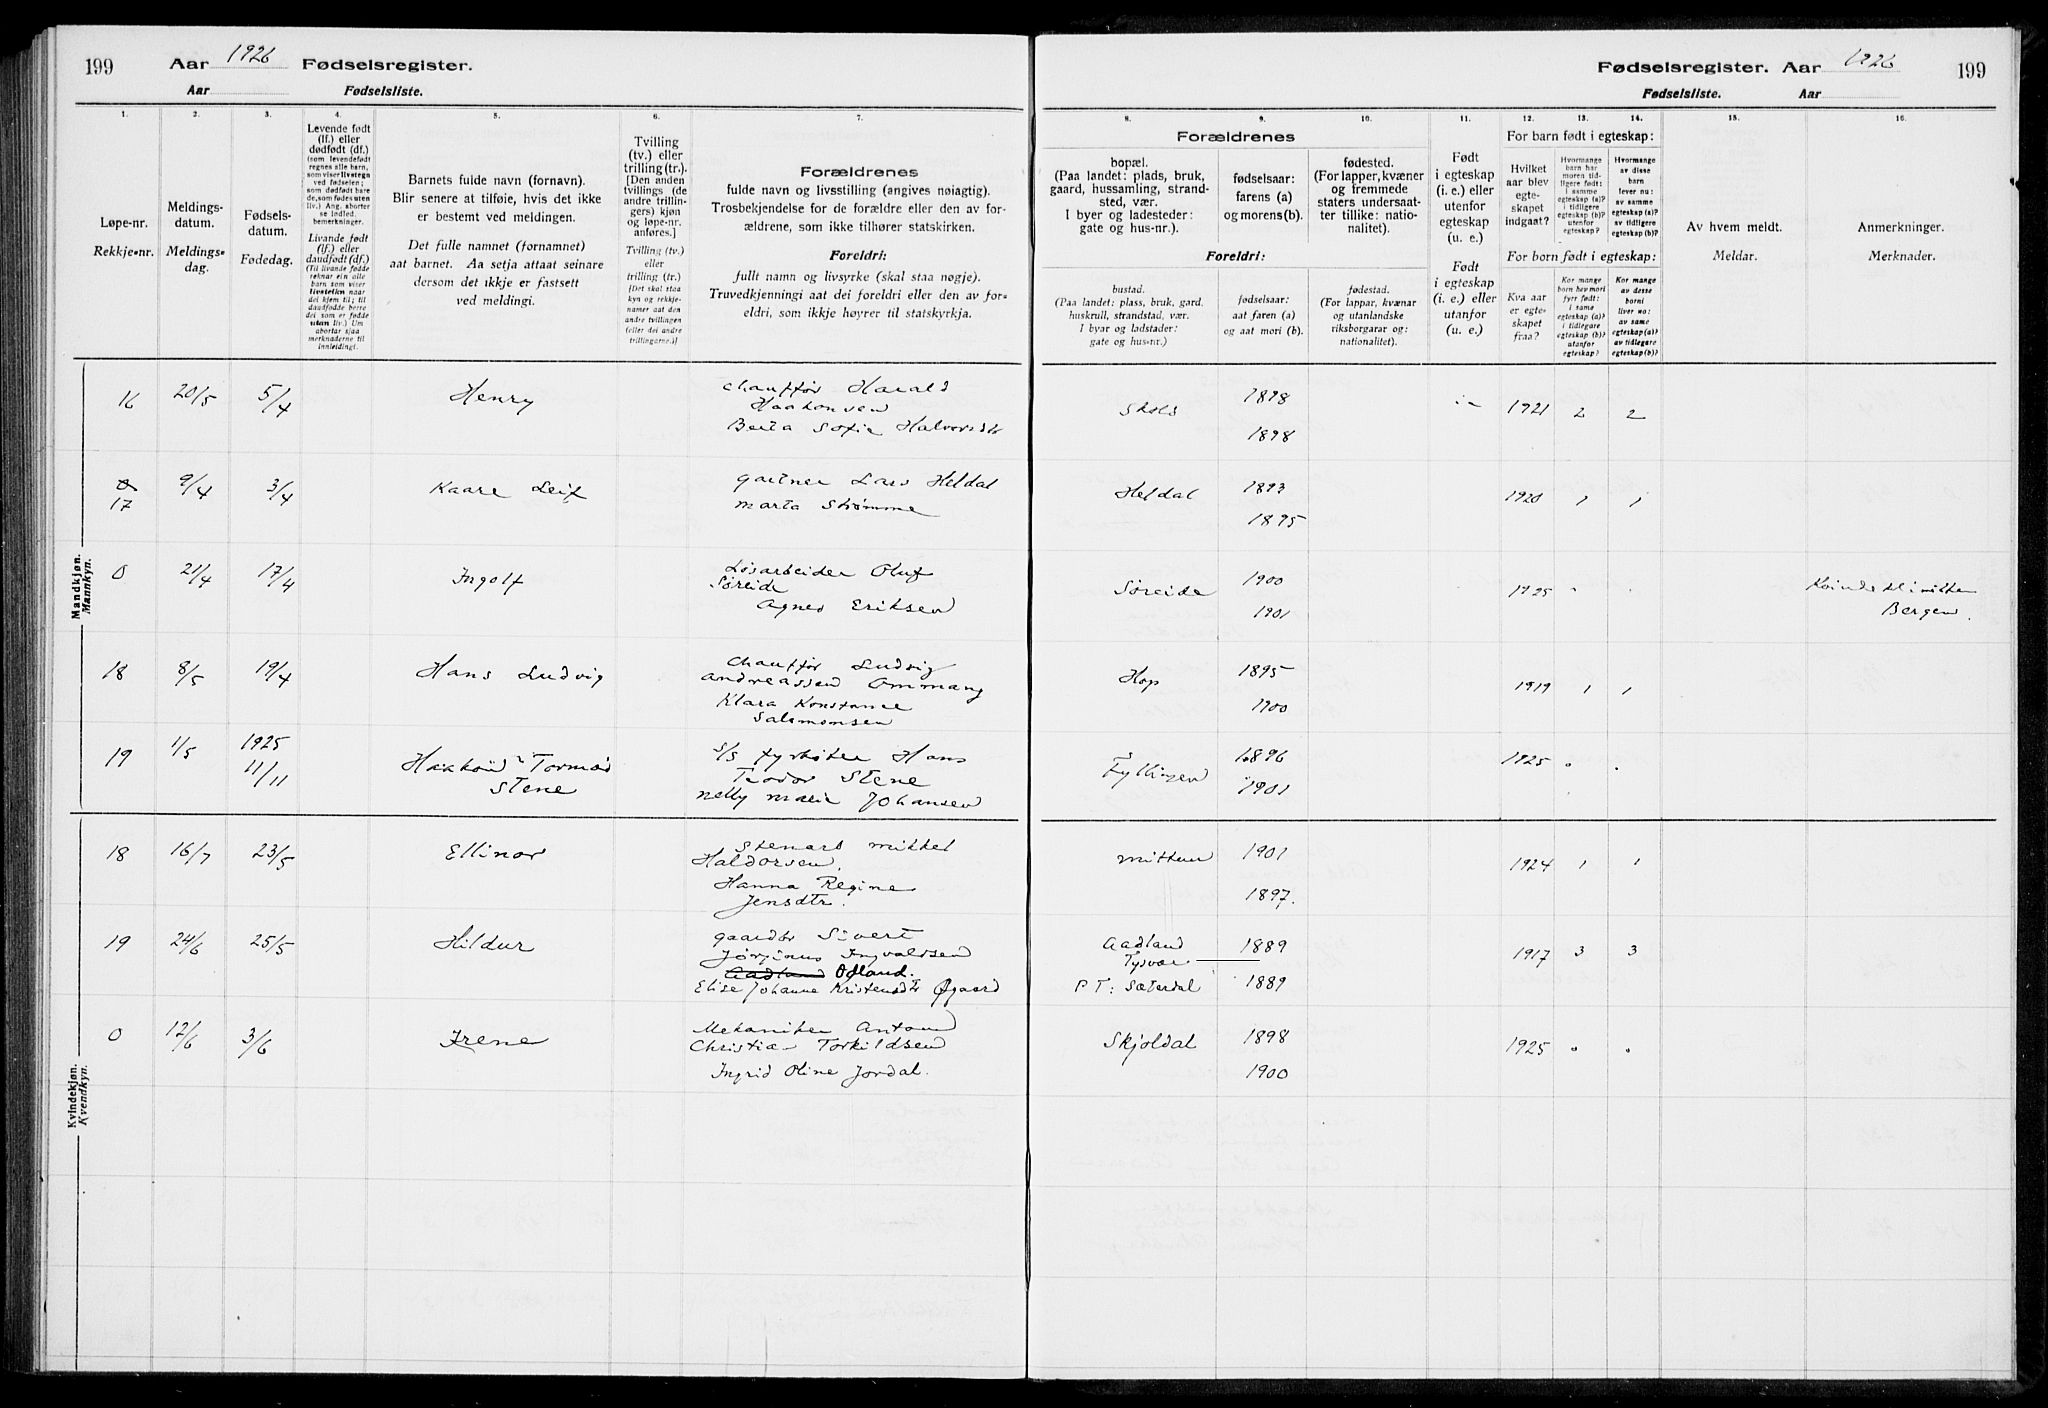 199 Aar 1926 Fødselsregister.
Aar Fødselsliste.
1. 2. 3. 4. 5. 6. 7.
Løpe-nr.
Rekkje-nr.
Meldings-
datum.
Meldings-
dag.
Fødsels-
datum.
Fødedag.
Levende født
(lf.) eller
dødfødt (df.)
(som levendefødt
regnes alle barn,
som viser livstegn
ved fødselen;
som dødfødt bare
de, som fødes uten
liv.) Ang. aborter
se indled.
bemerkninger.
Livande født
(lf.) eller
daudfødt (df.)
(Til livande fødde
reknar ein alle
barn som viser
livsteikn naar
dei kjem til; til
daudfødde berre
dei som er fødde
utan liv.) Um
abortar sjaa
merknaderne til
innleidingi.
Barnets fulde navn (fornavn).
Blir senere at tilføie, hvis det ikke
er bestemt ved meldingen.
Det fulle namnet (fornamnet)
aat barnet. Aa setja attaat seinare
dersom det ikkje er fastsett
ved meldingi.
Tvilling
(tv.) eller
trilling (tr.).
[Den anden
tvillings (de
andre trillin-
gers) kjøn
og løpe-nr.
anføres.]
Tvilling (tv.)
eller
trilling (tr.)
[Det skal staa
kyn og rekkje-
namer aat den
andre tvillingen
(eller dei andre
trillingarne.)]
Forældrenes
fulde navn og livsstilling (angives nøiagtig).
Trosbekjendelse for de forældre eller den av for-
ældrene, som ikke tilhører statskirken.
Foreldri:
fullt namn og livsyrke (skal staa nøgje).
Truvedkjenningi aat dei foreldri eller den av for-
eldri, som ikkje høyrer til statskyrkja.
Mandkjøn.
Mannkyn.
16 20/5 5/4 Henry
Chauffør Harald
Haakonsen
Berta Sofie Halvorsdtr
0
17 9/4 3/4 Kaare Leif
gartner Lars Heldal
Marta Strømme
0 21/4 17/4 Ingolf
Løsarbeider Oluf
Søreide
Agnes Eriksen
18 8/5 19/4 Hans Ludvig
Chauffør Ludvig
Andreassen Ommang
Klara Konstanse
Salomonsen
19 1/5 1925
11/11
Haakon Tormod
Stene
S/S fyrbøter Hans
Teodor Stene
Nelly Marie Johansen
Kvindekjøn.
Kvendkyn.
18 16/7 23/5 Ellinor
Stenarb Mikkel
Haldorsen
Hanna Regine
Jensdtr.
19 24/6 25/5 Hildur
gaardbr Sivert
Jørginus Ingvaldsen
Aadland Odland.
Elise Johanne Kristensdtr Øgaard
0 12/6 3/6 Irene
Mekaniker Anton
Christian Torkildsen
Ingrid Oline Jordal.
Fødselsregister. Aar 1926 199
Fødselsliste. Aar
8. 9. 10. 11. 12. 13. 14. 15. 16.
Forældrenes
bopæl.
(Paa landet: plads, bruk,
gaard, hussamling, strand-
sted, vær.
I byer og ladesteder:
gate og hus-nr.).
fødselsaar:
farens (a)
og morens (b).
fødested.
(For lapper, kvæner
og fremmede
staters undersaat-
ter tillike: natio-
nalitet).
Foreldri:
bustad.
(Paa landet: plass, bruk, gard.
huskrull, strandstad, vær.
I byar og ladstader:
gate og hus-nr.)
fødselsaar:
aat faren (a)
og aat mori (b).
fødestad.
(For lappar, kvænar
og utanlandske
riksborgarar og:
nationalitet).
Født
i egteskap
(i. e.) eller
utenfor
egteskap
(u. e.)
Født
i egteskap
(i. e.) eller
utanfor
(u. e.)
For barn født i egteskap:
Hvilket
aar blev
egte-
skapet
indgaat?
Hvormange
barn har
moren tid-
ligere født:
i samme
egteskap (a)?
i tidligere
egteskap (b)?
utenfor
egteskap?
Hvormange
av disse
barn
lever nu:
av samme
egteskap (a)?
av tidligere
egteskap (b)?
For born født i egteskap:
Kva aar
er egte-
skapet
fraa?
Kor mange
born hev mori
fyrr født:
i same
egteskap (a)?
i tidlegare
egteskap (b)?
utanfor
egteskap?
Kor mange
av desse
borni
liver no:
av same
egteskap (a)?
av tidlegare
egteskap (b)?
Av hvem meldt.
Meldar.
Anmerkninger.
Merknader.
1898
1898
1921 2 2
Heldal 1893
1895
1920 1 1
Søreide 1900
1901
1925
Kvindeklinikken
Bergen.
Hop 1895
1900
1919 1 1
Fyllingen 1896
1901
1925
1901
1897.
1924 1 1
Aadland
Tysvær
PT: Sæterdal
1889
1889
1917 3 3
Skjoldal 1898
1900
1925